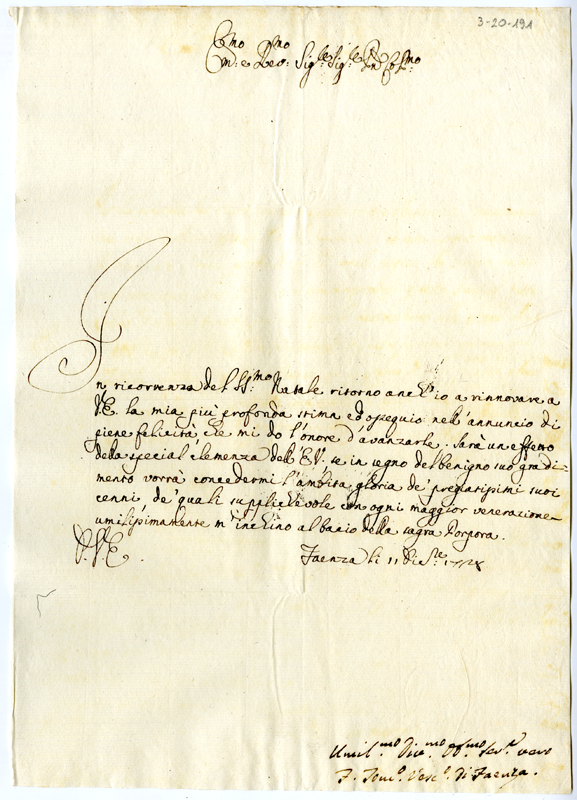 3-20-191
Em.mo e Rev.mo Sig.re Sig.re P.ron Col.mo
In ricorrenza del SS.mo Natale ritorno anch'io a rinnovare a
V.E. la mia più profonda stima ed ossequio nell'annuncio di
piene felicità, che mi do l'onore d'avanzarle. Sarà un effetto
della special clemenza dell'E.V. se in segno del benigno suo gradi-
mento vorrà concedermi l'ambita gloria de' pregiatissimi suoi
cenni, de' quali supplichevole con ogni maggior venerazione
umilissimamente m'inchino al bacio della sagra Porpora.
Faenza li 11 di
Umil.mo Div.mo Obb.mo Ser.r vero
F. Tom.o Vesc.o di Faenza.